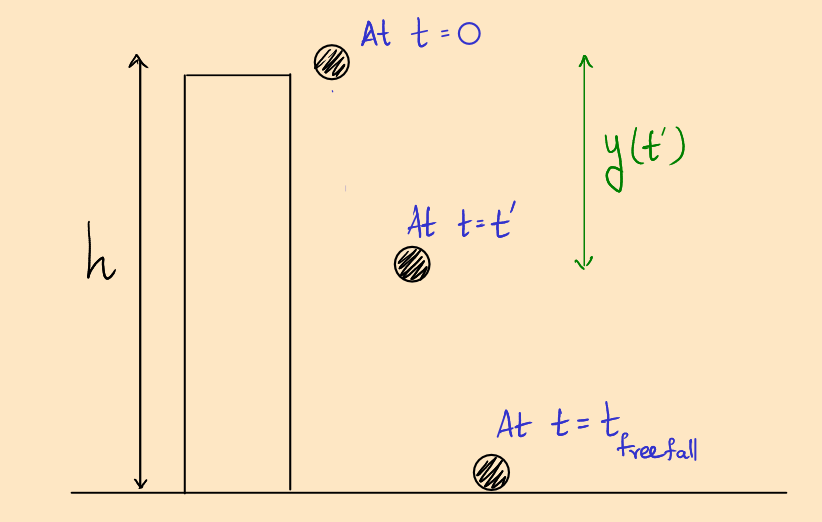 At t = 0
y(t')
At t = t'
h
At t = t_freefall